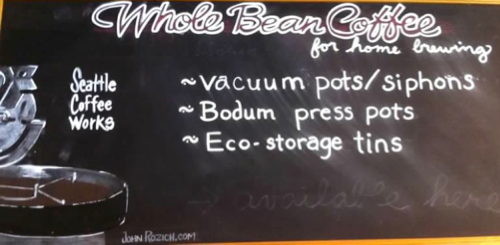 Whole Bean Coffee
for home brewing
Seattle
Coffee
Works
~ vacuum pots/siphons
~ Bodum press pots
~ Eco-storage tins
→ available here
JOHNROZICH.COM